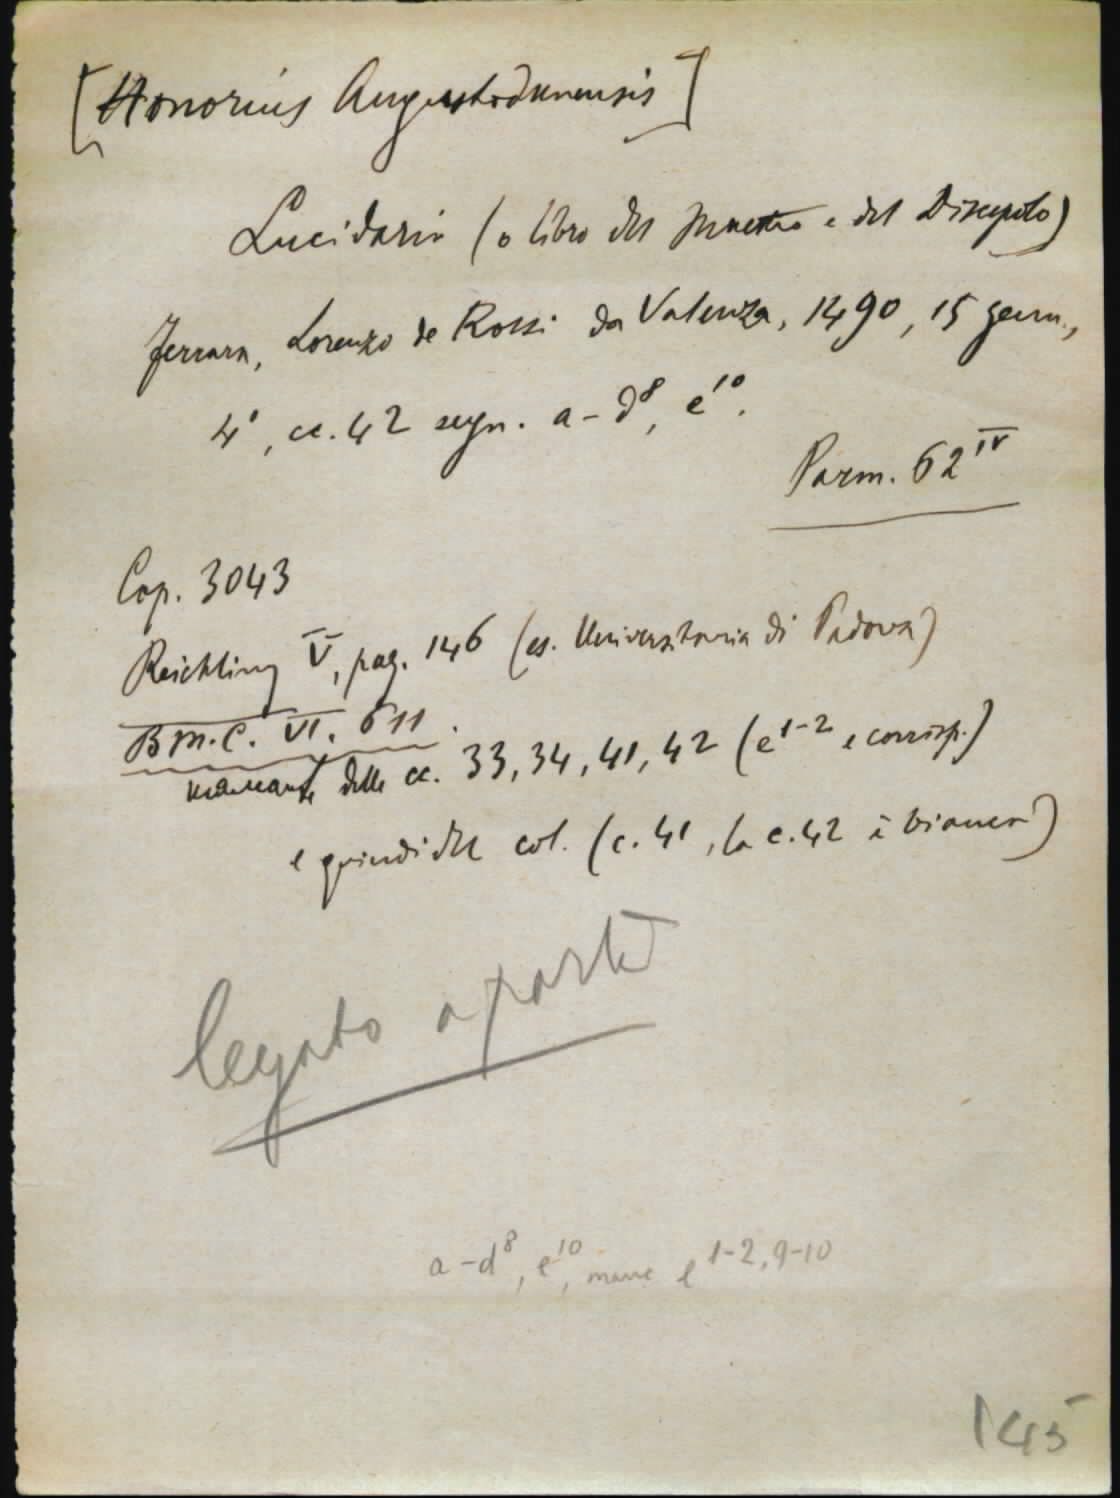 [Honorius Augustodunensis]
Lucidario (o libro del Maestro e del Discepolo)
Ferrara, Lorenzo de Rossi da Valenza, 1490, 15 genn.,
4°, cc. 42 segn. a-d⁸, e¹⁰.
Parm. 62 IV
Cop. 3043
Reichling V, pag. 146 (es. Universitaria di Padova)
B.M.C. VI. 611.
mancante delle cc. 33, 34, 41, 42 (e¹⁻² e corrisp.)
e quindi del col. (c. 41, la c. 42 è bianca)
legato a parte
a-d⁸, e¹⁰, manc e¹⁻²,⁹⁻¹⁰
145